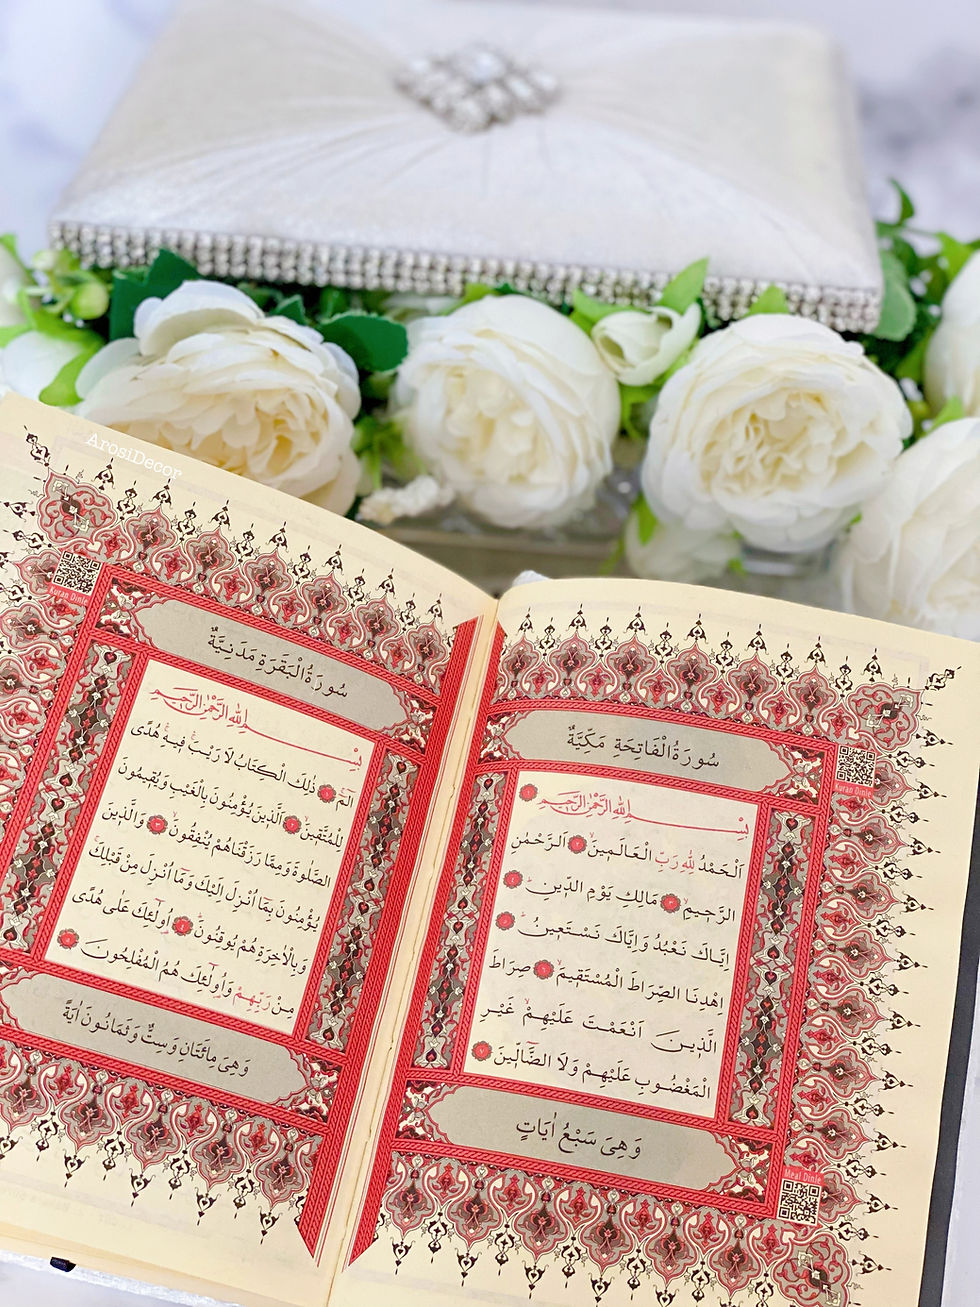 ArosiDecor
سُورَةُ الْفَاتِحَةِ مَكِّيَّةٌ
Kuran Dinle
بِسْمِ اللهِ الرَّحْمٰنِ الرَّحِيمِ ١
اَلْحَمْدُ لِلّٰهِ رَبِّ الْعَالَمِينَ ٢ اَلرَّحْمٰنِ
الرَّحِيمِ ٣ مَالِكِ يَوْمِ الدِّينِ ٤
اِيَّاكَ نَعْبُدُ وَاِيَّاكَ نَسْتَعِينُ ٥
اِهْدِنَا الصِّرَاطَ الْمُسْتَقِيمَ ٦ صِرَاطَ
الَّذِينَ اَنْعَمْتَ عَلَيْهِمْ غَيْرِ
الْمَغْضُوبِ عَلَيْهِمْ وَلَا الضَّالِّينَ ٧
وَهِىَ سَبْعُ اٰيَاتٍ
Meal Dinle
سُورَةُ الْبَقَرَةِ مَدَنِيَّةٌ
Kuran Dinle
بِسْمِ اللهِ الرَّحْمٰنِ الرَّحِيمِ
الٓمٓ ١ ذٰلِكَ الْكِتَابُ لَا رَيْبَ فِيهِ هُدًى
لِلْمُتَّقِينَ ٢ اَلَّذِينَ يُؤْمِنُونَ بِالْغَيْبِ وَيُقِيمُونَ
الصَّلٰوةَ وَمِمَّا رَزَقْنَاهُمْ يُنْفِقُونَ ٣ وَالَّذِينَ
يُؤْمِنُونَ بِمَٓا اُنْزِلَ اِلَيْكَ وَمَٓا اُنْزِلَ مِنْ قَبْلِكَ
وَبِالْاٰخِرَةِ هُمْ يُوقِنُونَ ٤ اُو۬لٰٓئِكَ عَلٰى هُدًى
مِنْ رَبِّهِمْ وَاُو۬لٰٓئِكَ هُمُ الْمُفْلِحُونَ ٥
وَهِىَ مِائَتَانِ وَسِتٌّ وَثَمَانُونَ اٰيَةً